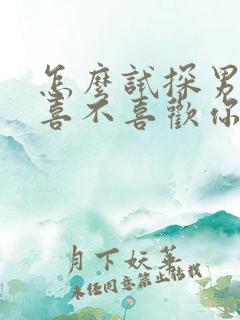 怎麼試探男
喜不喜歡你
月下妖華
未任同意禁止轉載